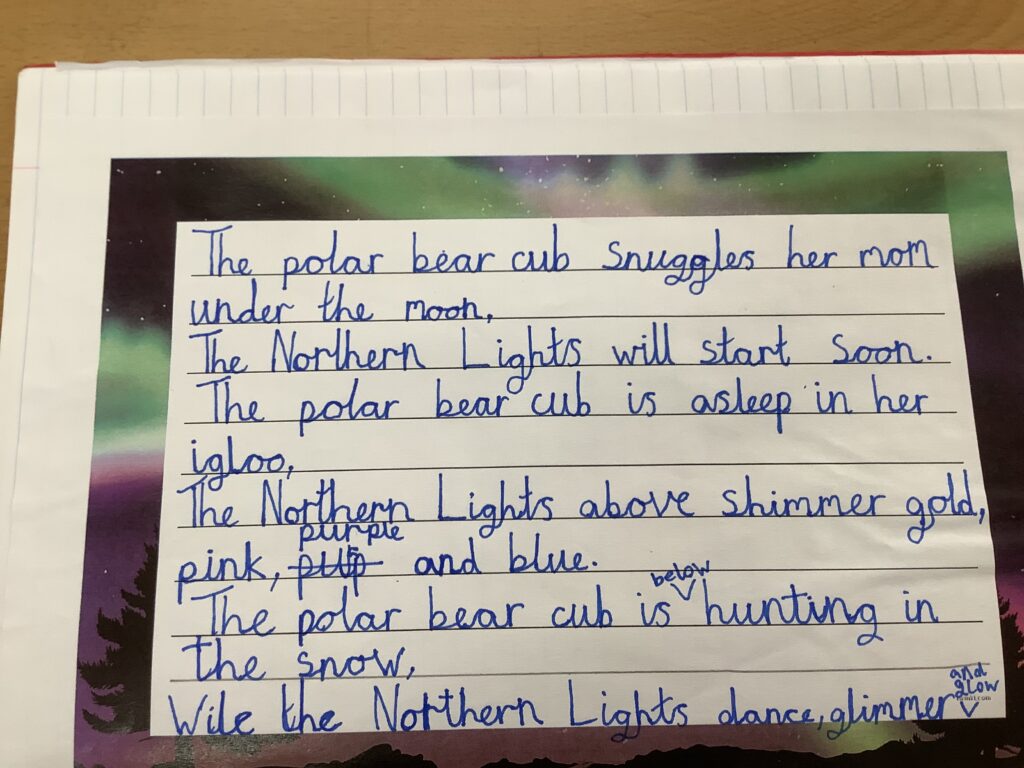 The polar bear cub snuggles her mom
under the moon,
The Northern Lights will start soon.
The polar bear cub is asleep in her
igloo,
The Northern Lights above shimmer gold,
purple
pink, pup and blue.
below
The polar bear cub is hunting in
the snow,
and
glow
Wile the Northern Lights dance, glimmer